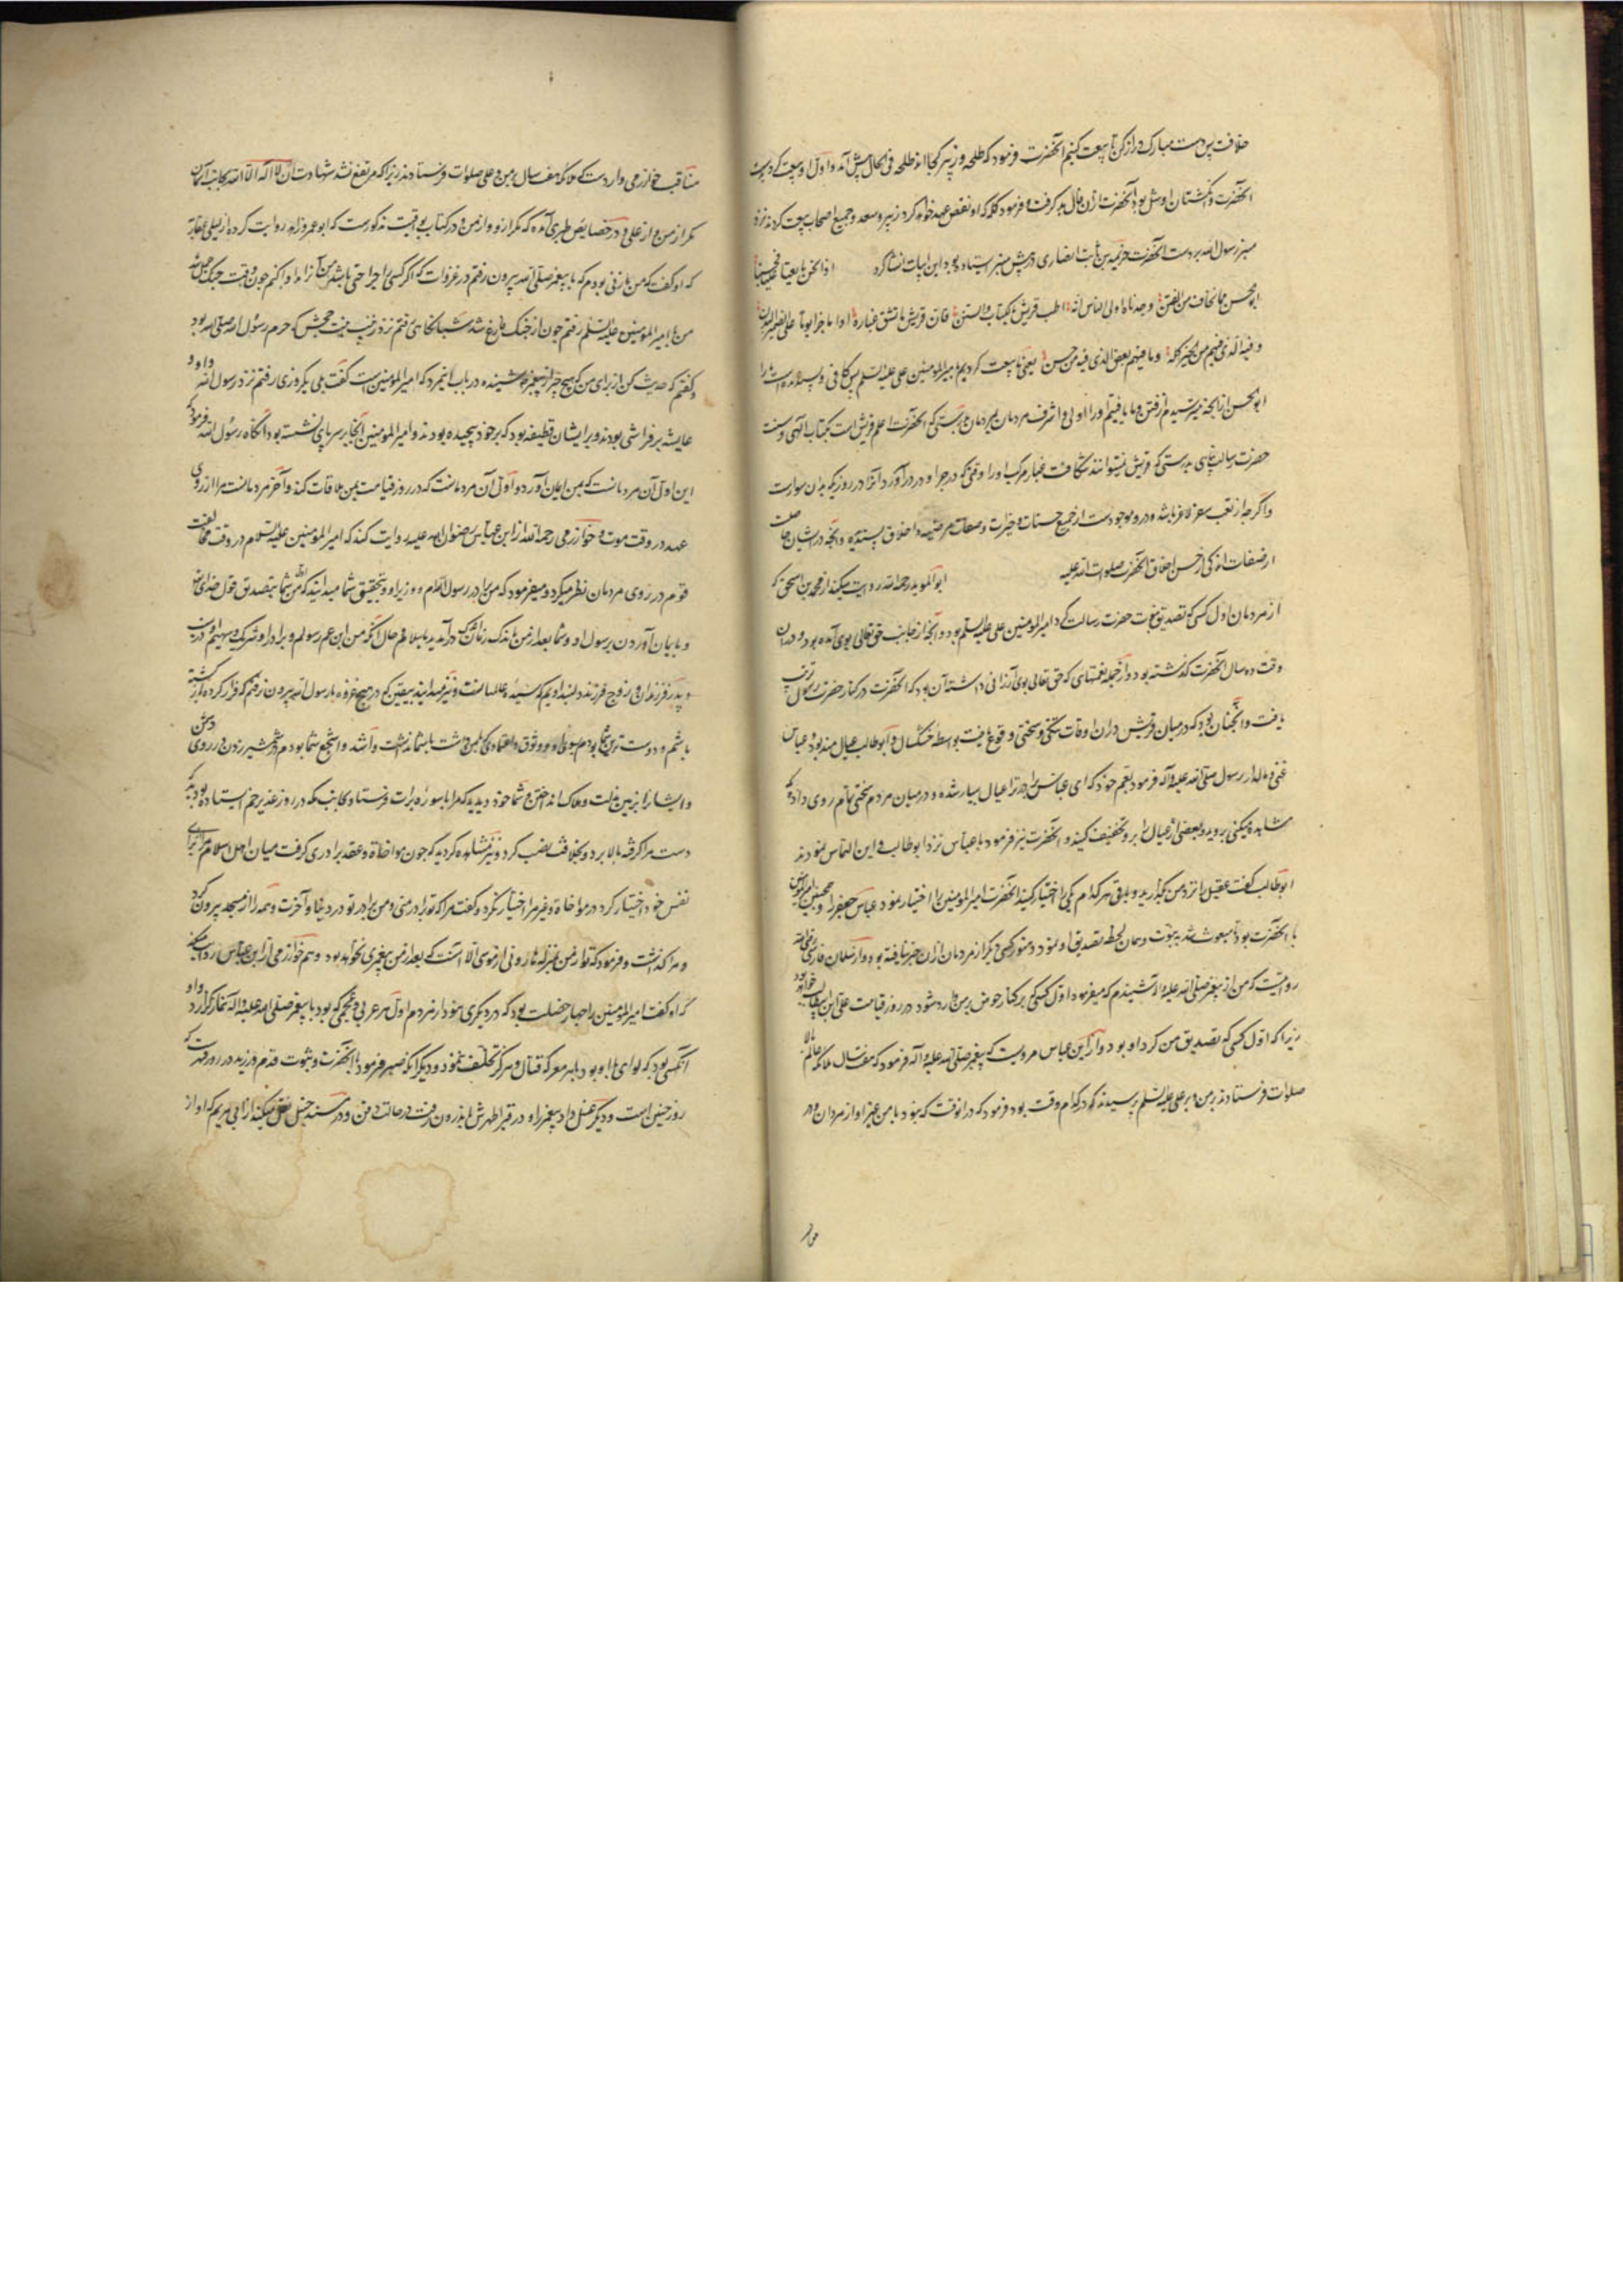 خلافت پس دست مبارک دراز کن تا بیعت کنیم آنحضرت فرمود که طلحه و زبیر کجااند طلحه فی الحال پیش آمد و اول او بیعت کرد و دست
آنحضرت و انگشتان او شل بود آنحضرت ازان فال بد گرفت و فرمود که او نقض عهد خواهد کرد زبیر و سعد و جمیع اصحاب بیعت کردند نزد
منبر رسول الله بر دست آنحضرت خزیمة بن ثابت انصاری در پیش منبر ایستاده بود این ابیات انشا کرد اذا نحن بایعنا علیا فحسبنا
ابو حسن مما نخاف من الفتن وجدناه اولی الناس انه اطب قریش بکتاب والسنن فان قریش ما تشق غباره اذا ما جرا یوما علی الضمر البدن
وفیه الذی فیهم من الخیر کله وما فیهم بعض الذی فیه من حسن یعنی ما بیعت کردیم بامیرالمومنین علی علیه السلم پس کافی و بسنده است ما را
ابو الحسن از آنچه میترسیدیم از فتن و ما یافتیم او را اولی و اشرف مردمان بمردمان بدرستی که آنحضرت اعلم قریش است بکتاب الهی و سنت
حضرت رسالت پناهی بدرستی که قریش نمیتوانند شکافت غبار مرکب او را وقتی که در جرا و در آورد آنرا در روزیکه بدان سوارست
و اگر چه از تعب سفر لاغر باشد و درو موجودست از جمیع حسنات و خیرات و صفات مرضیه و اخلاق پسندیده و آنچه در ایشان هست
از صفات اندکی از حسن اخلاق آنحضرت صلوات الله علیه ابو المؤید رحمه الله روایت میکند از محمد بن اسحق که
از مردمان اول کسی که تصدیق نبوت حضرت رسالت کرد امیرالمومنین علی علیه السلم بود و آنچه از جانب حق تعالی بوی آمده بود و دران
وقت ده سال آنحضرت گذشته بود و از جمله نعمتهای که حق تعالی بوی ارزانی داشته آن بود که آنحضرت در کنار حضرت رسول تربیت
یافت و آنچنان بود که در میان قریش دران اوقات تنگی و سختی وقوع یافت بواسطه خشکسال و ابوطالب عیال مند بود و عباس
غنی و مالدار رسول صلی الله علیه و آله فرمود بعم خود که ای عباس برادر ترا عیال بسیار شده و در میان مردم سختی تمام روی داده که
مشاهده میکنی بروید و بعضی از عیال را برو تخفیف کنید و آنحضرت نیز فرمود با عباس نزد ابوطالب و این التماس نمودند
ابوطالب گفت عقیل را نزد من بگذارید و باقی هر کدام یکی را اختیار کنید آنحضرت امیرالمومنین را اختیار نمود عباس جعفر را و همچنین امیرالمومنین
با آنحضرت بود تا مبعوث شد به نبوت و همان لحظه تصدیق او نمود و هنوز کسی دیگر از مردمان ازان خبر نیافته بود و از سلمان فارسی رضی الله
روایتست که من از پیغمبر صلی الله علیه و آله شنیدم که میفرمود اول کسی که بر کنار حوض بر من وارد شود در روز قیامت علی ابن ابیطالب خواهد بود
زیرا که اول کسی که تصدیق من کرد او بود و از ابن عباس مرویست که پیغمبر صلی الله علیه و آله فرمود که هفت سال ملائکه عالم بالا
صلوات فرستادند بر من و بر علی علیه السلم پرسیدند که در کدام وقت بود فرمود که در انوقت که نبود با من غیر او از مردان و در
مناقب خوارزمی واردست که ملائکه هفت سال بر من و علی صلوات فرستادند زیرا که مرتفع نشد شهادت ان لا اله الا الله بجانب آسمان
مگر از من و از علی و در خصایص طبری آمده که مگر ازو و از من و در کتاب یواقیت مذکورست که ابو عمر زاهد روایت کرده از لیلی غفاریه
که او گفت که من زنی بودم که با پیغمبر صلی الله بیرون رفتم در غزوات که اگر کسی را جراحتی باشد من آنرا دوا کنم چون وقت جنگ جمل شد
من با امیرالمومنین علیه السلم رفتم چون از جنگ فارغ شد شبانگاهی رفتم نزد زینب بنت جحش که حرم رسول الله صلی الله بود
و گفتم که حدیث کن از برای من که هیچ چیز از پیغمبر شنیده در باب این مرد که امیرالمومنین است گفت بلی یکروزی رفتم نزد رسول الله و او و
عایشه بر فراشی بودند و بر ایشان قطیفه بود که بر خود پیچیده بودند و امیرالمومنین آنجا بر سر پای نشسته بود آنگاه رسول الله فرمود که
این اول آن مردمانست که بمن ایمان آورد و اول آن مردمانست که در روز قیامت بمن ملاقات کند و آخر مردمانست مرا از روی
عهد در وقت موت و خوارزمی رحمه الله از ابن عباس رضوان الله علیه روایت کند که امیرالمومنین علیه السلام در وقت مخالفت
قوم در روی مردمان نظر میکرد و میفرمود که من برادر رسول الله ام و وزیر او و بتحقیق شما میدانید که من شما بتصدیق قول خدای
و بایمان آوردن برسول او و شما بعد از من باندک زمانی درآمدید باسلام حال آنکه من ابن عم رسولم و برادر او و شریک و سهیم در نسب
و پدر فرزندان و زوج فرزند دلبند اویم که سیده عالمیانست و نیز میدانید بیقین که در هیچ غزوه با رسول الله بیرون نرفتم که فرار کرده باز گشته
باشم و دوست ترین شما بودم بسوی او و وثوق و اعتمادی که بمن داشت با شما نداشت و اشد و اشجع شما بودم در شمشیر زدن در روی دشمن
و ایشانرا بزمین مذلت و هلاک انداختن و شما خود دیدید که مرا با سوره برات فرستاد بجانب مکه در روز غدیر خم ایستاده بود که
دست مرا گرفته بالا برد و بخلافت نصب کرد و نیز مشاهده کردید که چون مواخاة و عقد برادری گرفت میان اهل اسلام مرا برای
نفس خود اختیار کرد در مواخاة و غیر مرا اختیار نکرد و گفت مرا که تو برادر منی و من برادر تو در دنیا و آخرت و همه را از مسجد بیرون کرد
و مرا گذاشت و فرمود که تو از من بمنزله هارونی از موسی الا آنست که بعد از من پیغمبری نخواهد بود و هم خوارزمی از ابن عباس روایت میکند
که او گفت امیرالمومنین را چهار خصلت بود که در دیگری نبود از مردم اول هر عربی و عجمی که بود با پیغمبر صلی الله علیه و اله نماز گزارد و او
آنکسی بود که لوای با او بود بهر معرکه قتال و هرگز تخلف ننمود و دیگر آنکه صبر فرمود با آنحضرت و ثبوت قدم ورزید در روز قهر که
روز حنین است و دیگر غسل داد پیغمبر را و در قبر اطهرش باندرون رفت در حالت دفن و در مسند حنبل نقل میکند از ابی مریم که او از